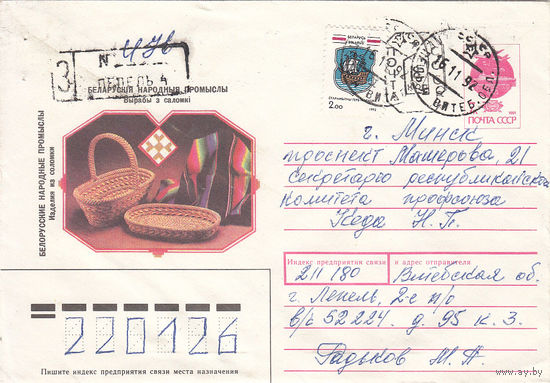 З
N 436
ЛЕПЕЛЬ 4
БЕЛАРУСКІЯ НАРОДНЫЯ ПРОМЫСЛЫ
Вырабы з саломкі
БЕЛОРУССКИЕ НАРОДНЫЕ ПРОМЫСЛЫ
Изделия из соломки
БЕЛАРУСЬ
2.00
1992
СССР
11 92
ВИТЕБ. ОБЛ.
ПОЧТА СССР
1991
г. Минск
проспект Машерова, 21
Секретарю республиканского
комитета профсоюза
Кеда Н. П.
Индекс предприятия связи и адрес отправителя
211180 Витебская об.
г. Лепель, 2-е п/о
в/с 52224. д. 95 к. 3.
Радьков М. А.
220126
Пишите индекс предприятия связи места назначения
www.ay.by